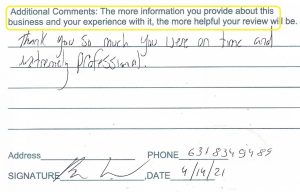 Additional Comments: The more information you provide about this
business and your experience with it, the more helpful your review will be.
Thank you so much you were on time and
extremely professional.
Address PHONE 6318349489
SIGNATURE DATE 4/14/21